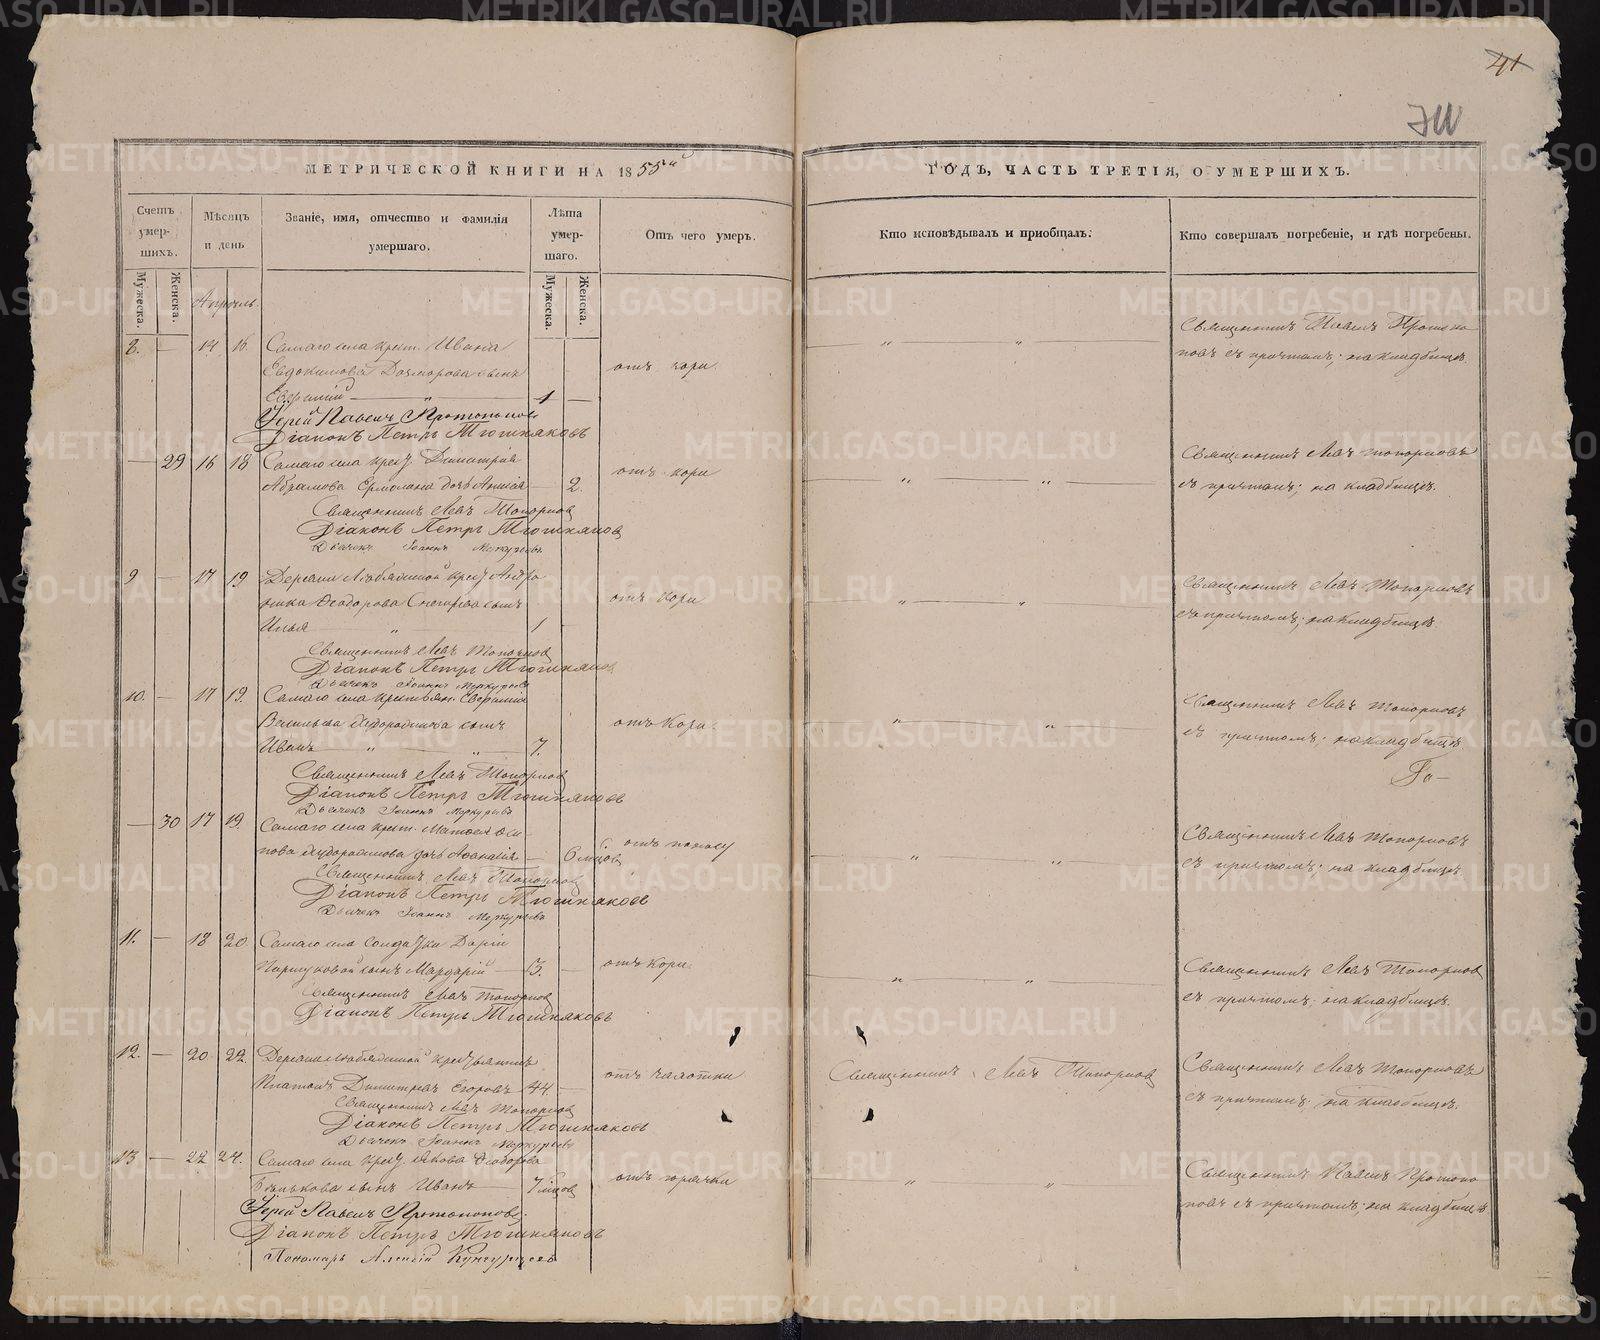 41
МЕТРИЧЕСКОЙ КНИГИ НА 1855й
ГОДЪ, ЧАСТЬ ТРЕТІЯ, О УМЕРШИХЪ.
Счетъ умер-шихъ.
Мѣсяцъ и день
Званіе, имя, отчество и фамилія умершаго.
Лѣта умер-шаго.
Отъ чего умеръ.
Кто исповѣдывалъ и пріобщалъ.
Кто совершалъ погребеніе, и гдѣ погребены.
Мужеска. Женска.
Мужеска. Женска.
Апрѣль.
8. — 14 16. Самаго села крест. Ивана
Евдокимова сынъ
Евфимій — " — 1 —
отъ кори.
" "
Священникъ Павелъ Протопо
повъ съ причтомъ; на кладбищѣ.
Іерей Павелъ Протопоповъ
Діаконъ Петръ Тюшняковъ
— 29 16 18 Самаго села крест. Димитрія
Абрамова дочь Анисія — 2.
отъ кори
" "
Священникъ Левъ Топорковъ
съ причтомъ; на кладбищѣ.
Священникъ Левъ Топорковъ
Діаконъ Петръ Тюшняковъ
Дьячекъ Іоаннъ Меркурьевъ
9 — 17 19. Деревни крест. Андро
ника Ѳеодорова сынъ
Илья — " — 1
отъ кори
" "
Священникъ Левъ Топорковъ
съ причтомъ; на кладбищѣ.
Священникъ Левъ Топорковъ
Діаконъ Петръ Тюшняковъ
Дьячекъ Іоаннъ Меркурьевъ
10. — 17 19. Самаго села крестьян. Евфимія
сынъ
Иванъ " " 7.
отъ кори.
" "
Священникъ Левъ Топорковъ
съ причтомъ; на кладбищѣ
Священникъ Левъ Топорковъ
Діаконъ Петръ Тюшняковъ
Дьячекъ Іоаннъ Меркурьевъ
— 30 17 19. Самаго села крест. Матвея Оси
пова дочь — 6 мцов
отъ поносу
" "
Священникъ Левъ Топорковъ
съ причтомъ; на кладбищѣ
Священникъ Левъ Топорковъ
Діаконъ Петръ Тюшняковъ
Дьячекъ Іоаннъ Меркурьевъ
11. — 18 20. Самаго села солдатки Даріи
сынъ Мардарій — 3. —
отъ кори.
" "
Священникъ Левъ Топорковъ
съ причтомъ; на кладбищѣ.
Священникъ Левъ Топорковъ
Діаконъ Петръ Тюшняковъ
12. — 20 22. Деревни крестьянинъ
Платонъ Димитріевъ Егоровъ 44. —
отъ чахотки
Священникъ Левъ Топорковъ
Священникъ Левъ Топорковъ
съ причтомъ; на кладбищѣ.
Священникъ Левъ Топорковъ
Діаконъ Петръ Тюшняковъ
Дьячекъ Іоаннъ Меркурьевъ
13 — 22 24. Самаго села крест. Якова Ѳеодорова
сынъ Иванъ — 7 мцов
отъ горячки
" "
Священникъ Павелъ Протопо
повъ съ причтомъ; на кладбищѣ
Іерей Павелъ Протопоповъ.
Діаконъ Петръ Тюшняковъ
Пономарь Алексій
METRIKI.GASO-URAL.RU